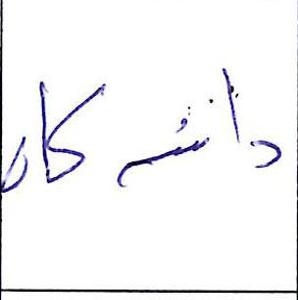 دانشگاه